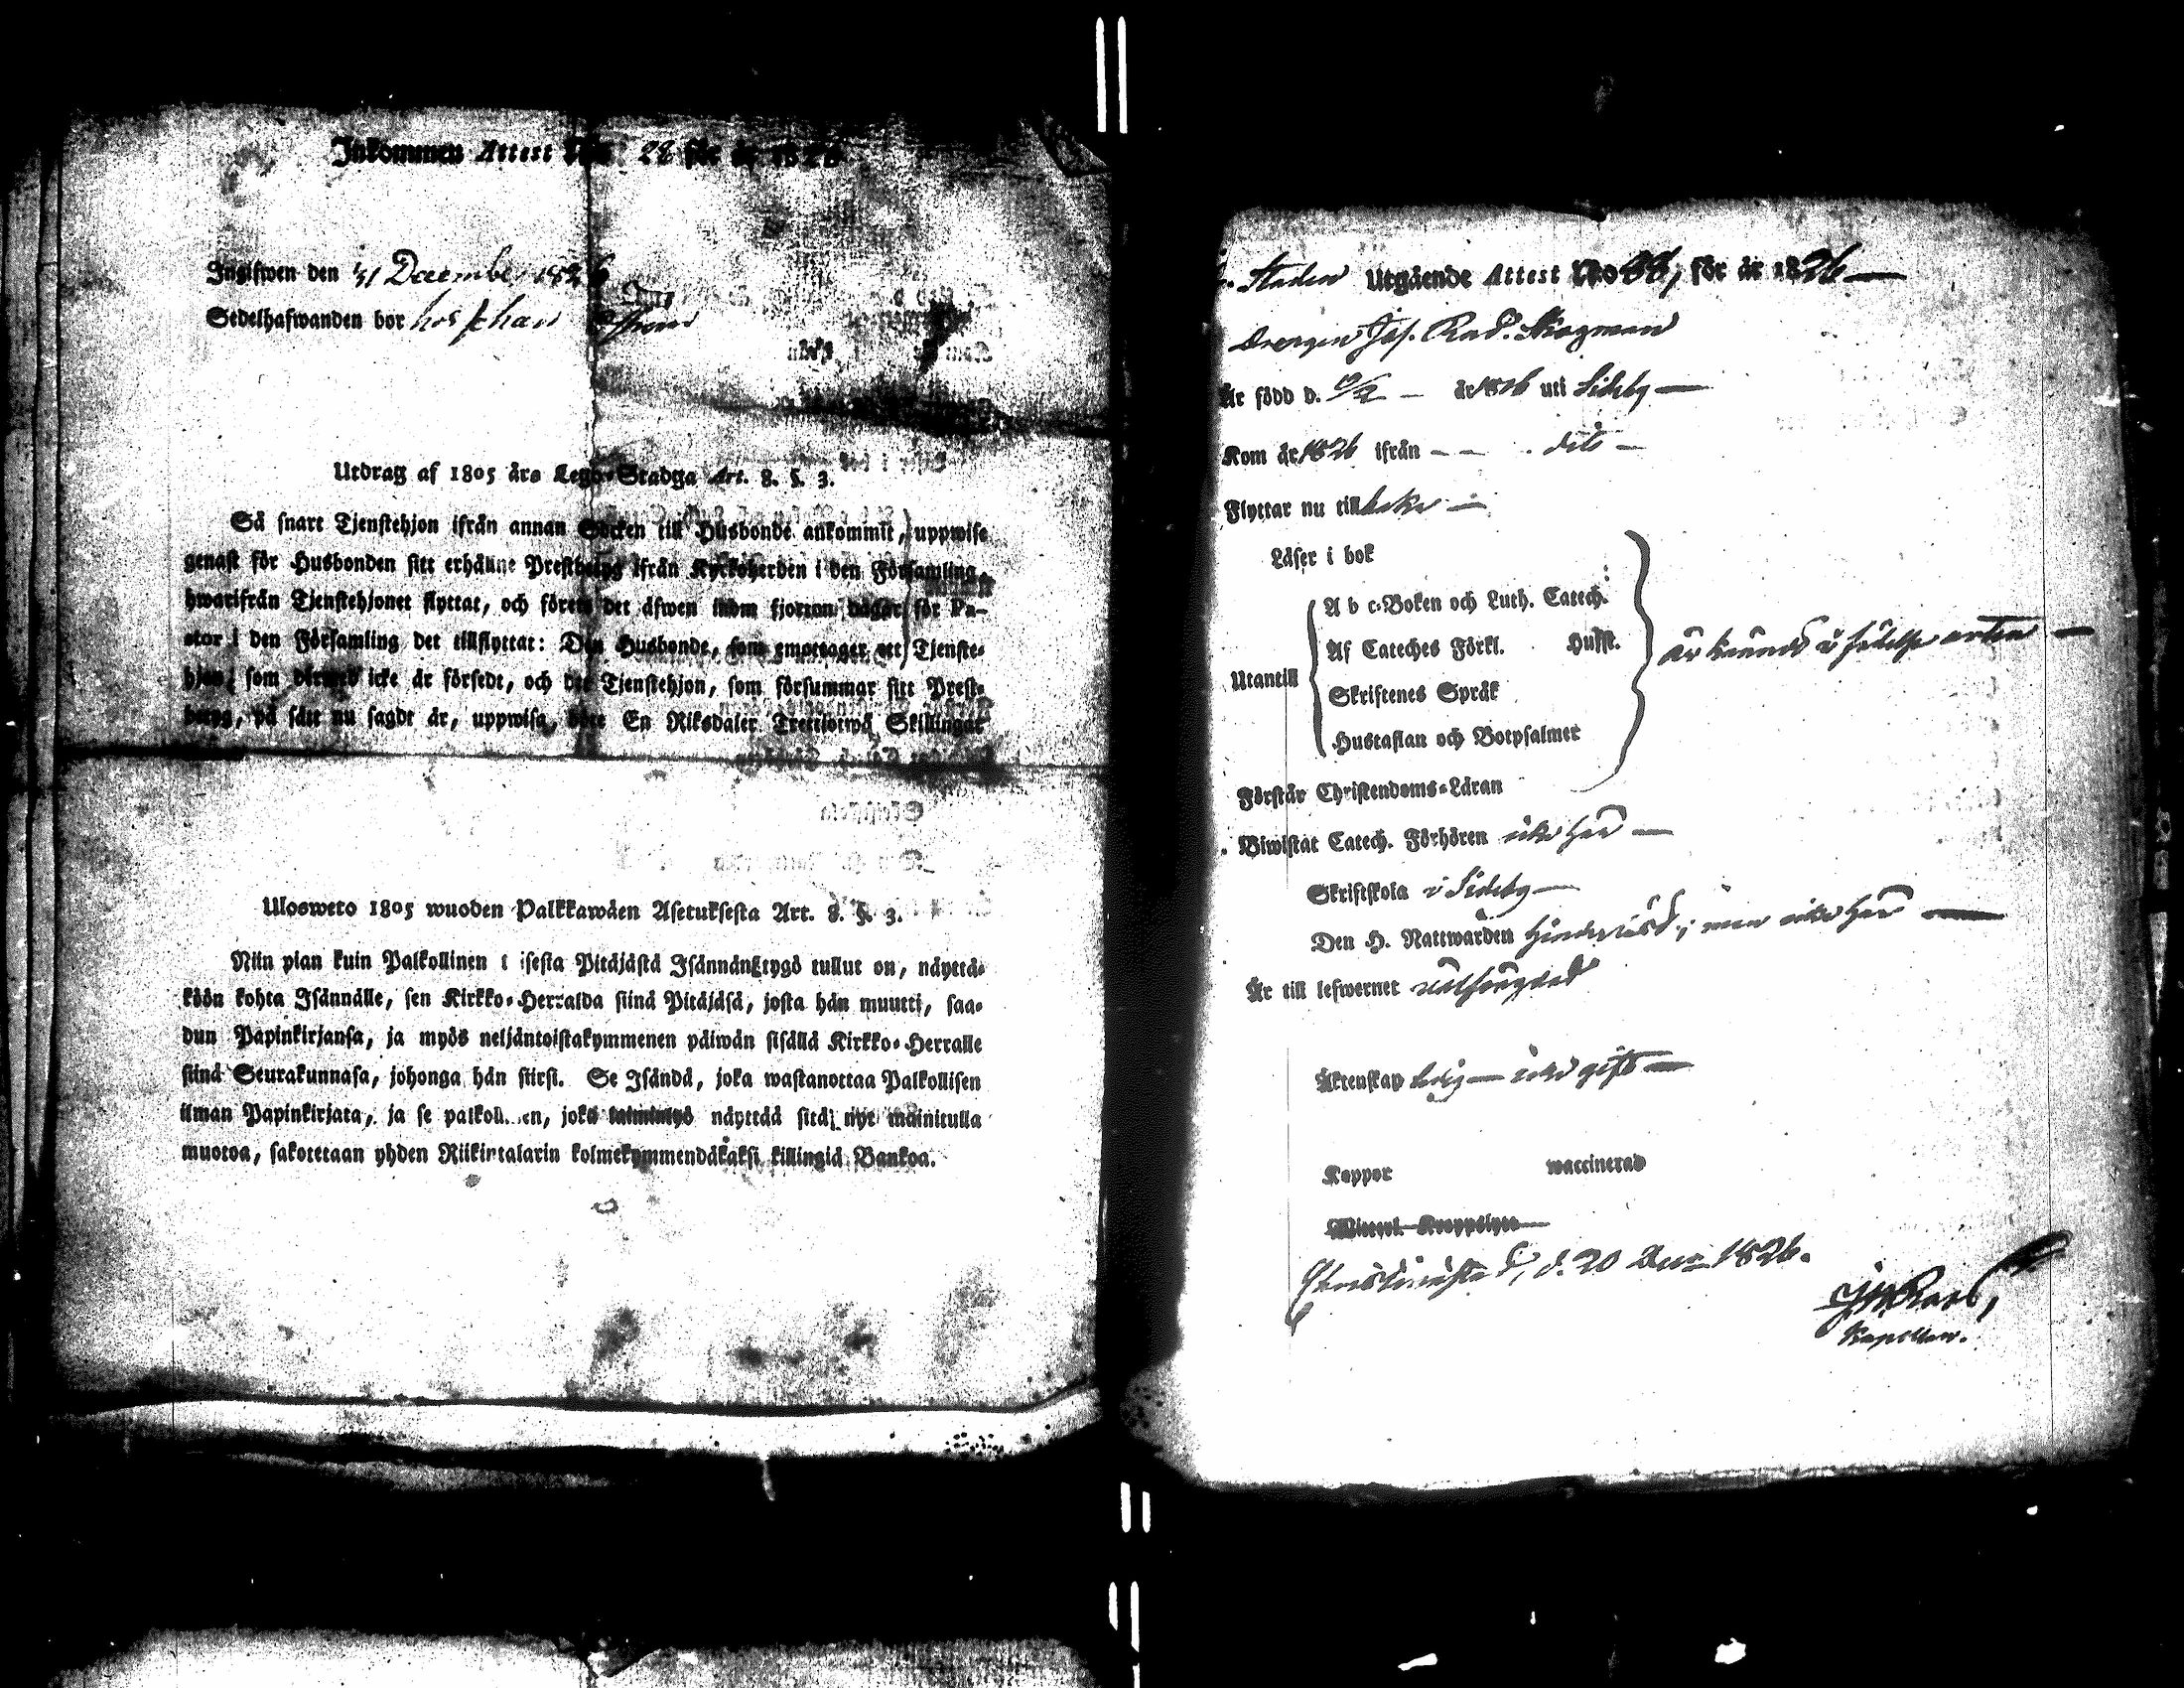 Inkommen Attest No 28 för år 1826
Ingifwen den 31 December 1826
Sedelhafwanden bor hos Johan
Utdrag af 1805 års Lego-Stadga Art. 8. §. 3.
Så snart Tjenstehjon ifrån annan Socken till Husbonde ankommit, uppwise
genast för Husbonden sitt erhållne Prestbetyg ifrån Kyrkoherden i den Församling,
hwarifrån Tjenstehjonet flyttat, och förete det äfwen inom fjorton dagar för Pa-
stor i den Församling det tillflyttat: Den Husbonde, som emottager ett Tjenste-
hjon, som dermed icke är försedt, och det Tjenstehjon, som försummar sitt Prest-
betyg, på sätt nu sagdt är, uppwisa, böte En Riksdaler Trettiotwå Skillingar
Ulosweto 1805 wuoden Palkkawäen Asetuksesta Art. 8. §. 3.
Niin pian kuin Palkollinen toisesta Pitäjästä Isännänsätygö tullut on, näyttä-
köön kohta Isännälle, sen Kirkko-Herralda siinä Pitäjäsä, josta hän muutti, saa-
dun Papinkirjansa, ja myös neljäntoistakymmenen päiwän sisällä Kirkko-Herralle
siinä Seurakunnasa, johonga hän siirsi. Se Isändä, joka wastanottaa Palkollisen
ilman Papinkirjata, ja se palkollinen, joka laiminlyö näyttää sitä, nyt mainitulla
muotoa, sakotetaan yhden Riikintalarin kolmekymmendäkaksi killingiä Bankoa.
Staden Utgående Attest No 88, för år 1826
Drengen Joh. Skogman
Är född d. år uti Sideby
Kom år 1826 ifrån dito
Flyttar nu tillbaka
Läser i bok
A b c-Boken och Luth. Catech.
Af Cateches Förkl. Hufst.
Utantill
Skriftenes Språk
är känd i födelse orten
Hustaflan och Botpsalmer
Förstår Christendoms-Läran
Biwistat Catech. Förhören icke här
Skriftskola i Sideby
Den H. Nattwarden men icke här
Är till lefwernet
Äktenskap ledig icke gift
Koppor waccinerad
Christinestad, d. 20 Dec. 1826.
Kapellan.